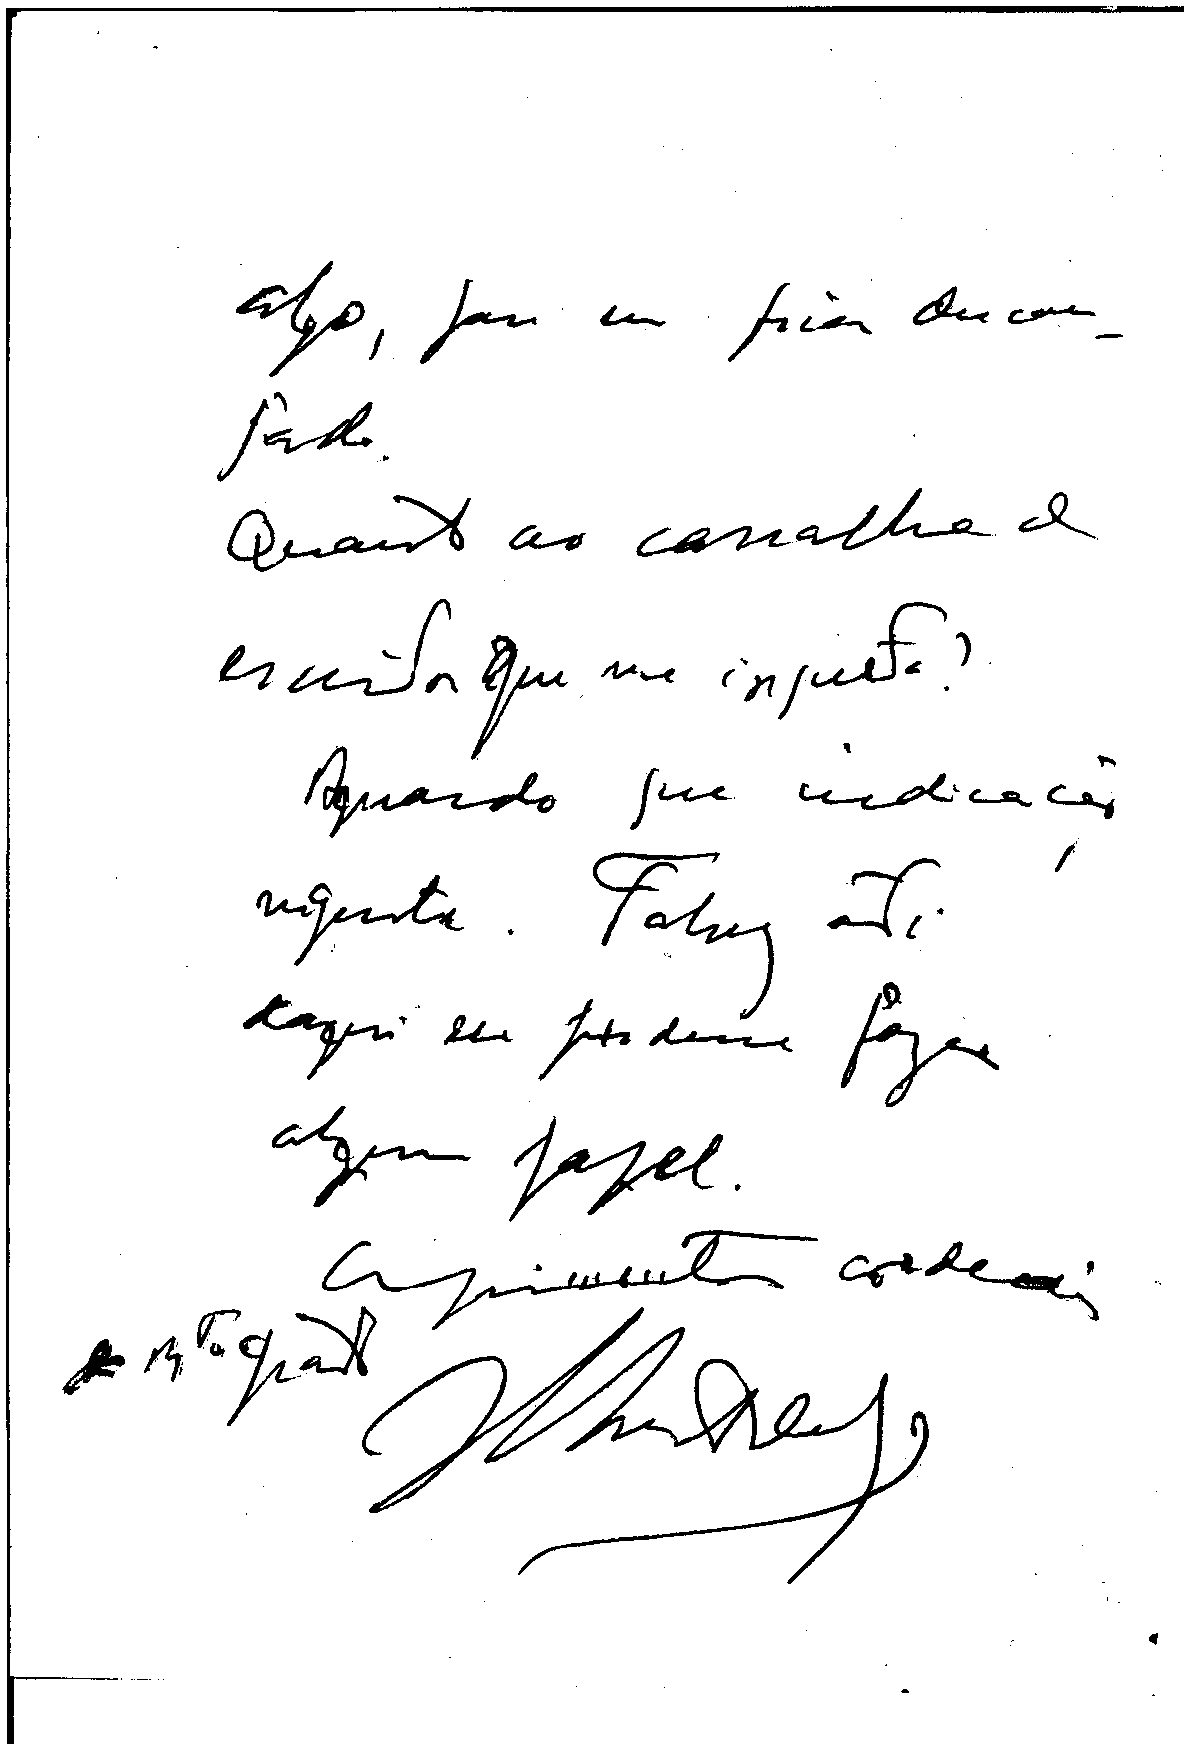 algo, para um ficar descan-
sado.
Quanto ao canalha do
escritor que me insulta?
Aguardo que indicação
urgente. Talvez até
daqui se podesse fazer
algum papel.
Cumprimentos cordeais
e mto grato